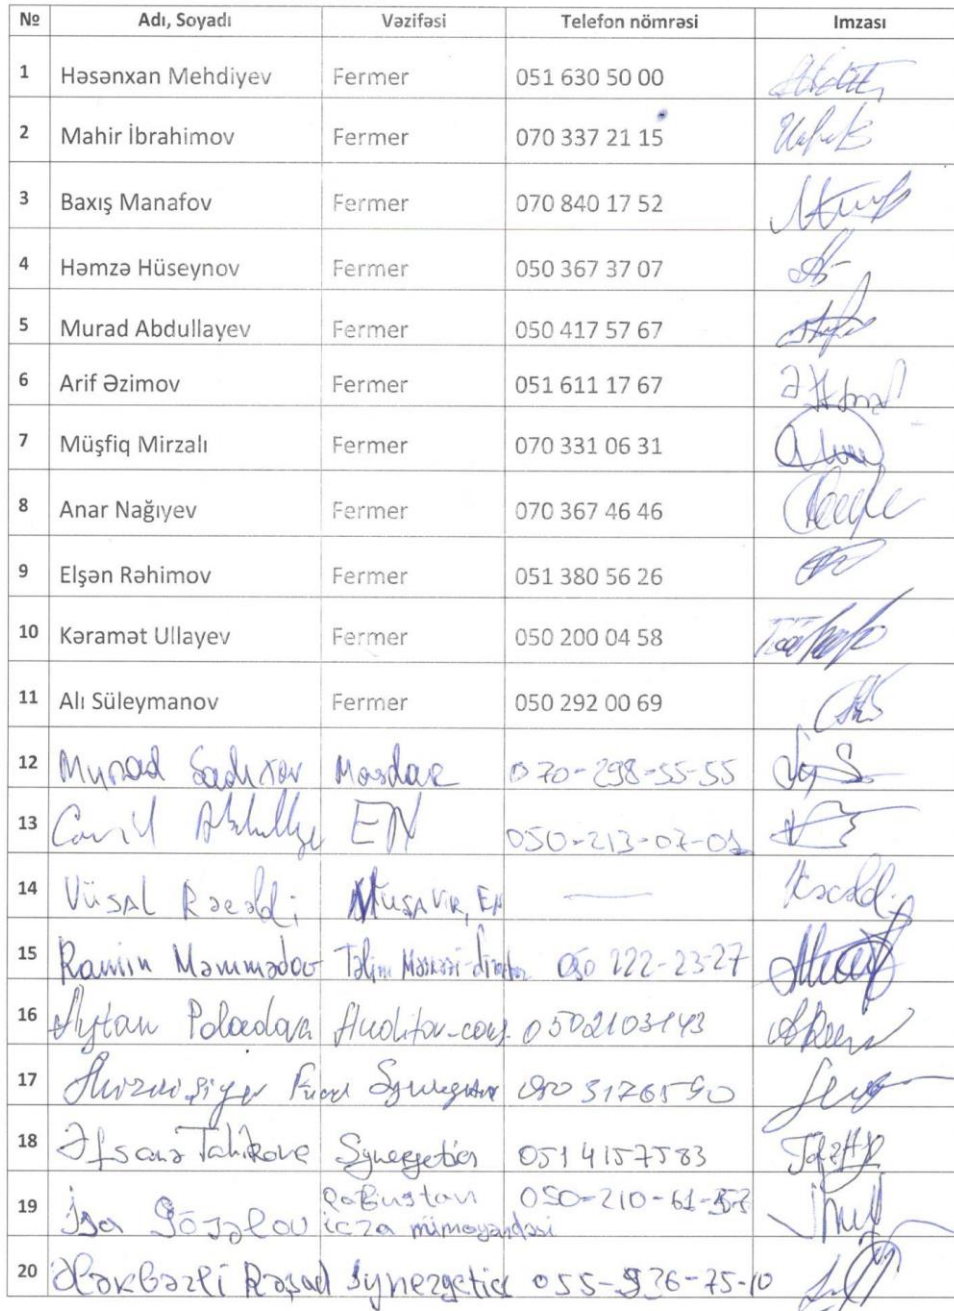 № Adı, Soyadı Vəzifəsi Telefon nömrəsi Imzası
1 Həsənxan Mehdiyev Fermer 051 630 50 00
2 Mahir İbrahimov Fermer 070 337 21 15
3 Baxış Manafov Fermer 070 840 17 52
4 Həmzə Hüseynov Fermer 050 367 37 07
5 Murad Abdullayev Fermer 050 417 57 67
6 Arif Əzimov Fermer 051 611 17 67
7 Müşfiq Mirzalı Fermer 070 331 06 31
8 Anar Nağıyev Fermer 070 367 46 46
9 Elşən Rəhimov Fermer 051 380 56 26
10 Kəramət Ullayev Fermer 050 200 04 58
11 Alı Süleymanov Fermer 050 292 00 69
12 Murad Sadıxov Masdar 070-298-55-55
13 Camil EN 050-213-07-01
14 Vüsal Rəcəbli Müşavir, EN
15 Ramin Məmmədov Təlim Mərkəzi-direktor 050 222-23-27
16 Aytən Poladova Auditor 0502103143
17 Synergetics 050 3176590
18 Əfsanə Tahirova Synergetics 051 4157583
19 İsa Gözəlov Qobustan icza nümayəndəsi 050-210-61-57
20 Ələkbərli Rəşad Synergetics 055-926-75-10